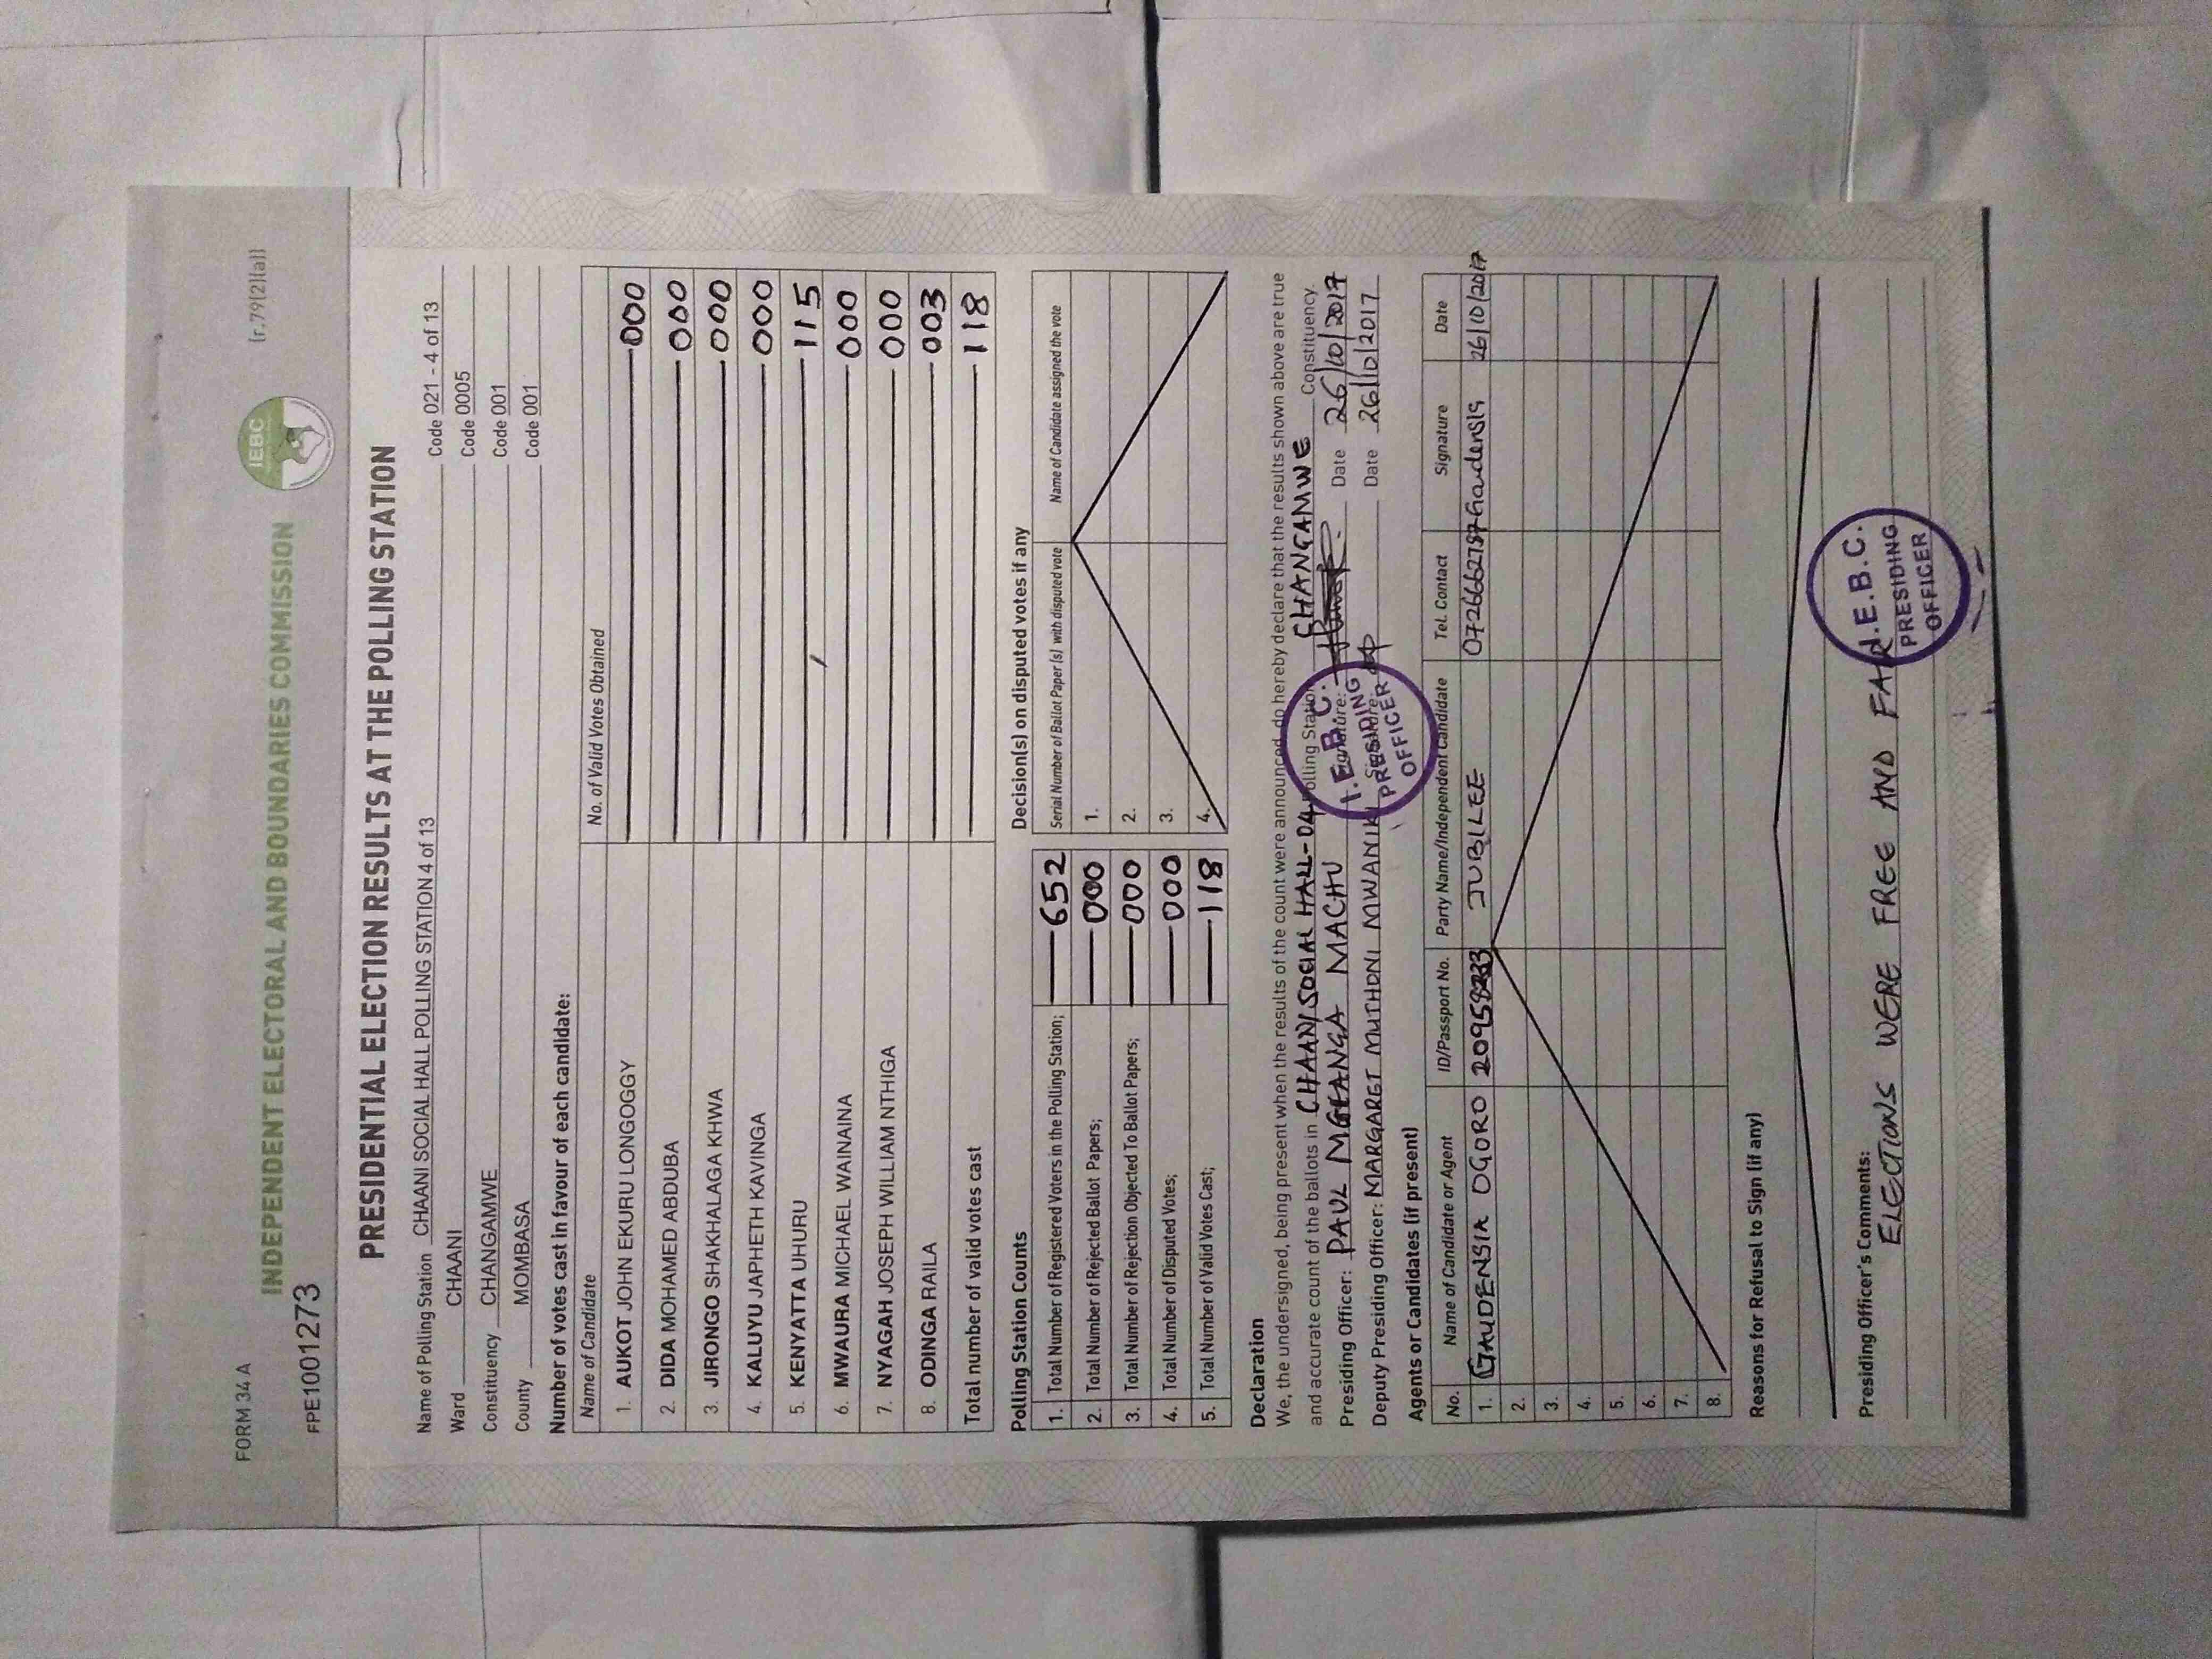 FORM 34 A
(r.79(2)(a))
IEBC
INDEPENDENT ELECTORAL AND BOUNDARIES COMMISSION
FPE1001273
PRESIDENTIAL ELECTION RESULTS AT THE POLLING STATION
Name of Polling Station CHAANI SOCIAL HALL POLLING STATION 4 of 13 Code 021 - 4 of 13
Ward CHAANI Code 0005
Constituency CHANGAMWE Code 001
County MOMBASA Code 001
Number of votes cast in favour of each candidate:
Name of Candidate No. of Valid Votes Obtained
1. AUKOT JOHN EKURU LONGOGGY 000
2. DIDA MOHAMED ABDUBA 000
3. JIRONGO SHAKHALAGA KHWA 000
4. KALUYU JAPHETH KAVINGA 000
5. KENYATTA UHURU 115
6. MWAURA MICHAEL WAINAINA 000
7. NYAGAH JOSEPH WILLIAM NTHIGA 000
8. ODINGA RAILA 003
Total number of valid votes cast 118
Polling Station Counts
1. Total Number of Registered Voters in the Polling Station; 652
2. Total Number of Rejected Ballot Papers; 000
3. Total Number of Rejection Objected To Ballot Papers; 000
4. Total Number of Disputed Votes; 000
5. Total Number of Valid Votes Cast; 118
Decision(s) on disputed votes if any
Serial Number of Ballot Paper (s) with disputed vote Name of Candidate assigned the vote
1.
2.
3.
4.
Declaration
We, the undersigned, being present when the results of the count were announced, do hereby declare that the results shown above are true
and accurate count of the ballots in CHAANI SOCIAL HALL-04 Polling Station CHANGAMWE Constituency.
Presiding Officer: PAUL MACHU Signature: Date 26/10/2017
Deputy Presiding Officer: MARGARET MUTHONI MWANIKI Signature: Date 26/10/2017
I.E.B.C.
PRESIDING
OFFICER
Agents or Candidates (if present)
No. Name of Candidate or Agent ID/Passport No. Party Name/Independent Candidate Tel. Contact Signature Date
1. GAUDENSIA OGORO JUBILEE 0726662787 Gaudensia 26/10/2017
2.
3.
4.
5.
6.
7.
8.
Reasons for Refusal to Sign (if any)
Presiding Officer's Comments:
ELECTIONS WERE FREE AND FAIR
I.E.B.C.
PRESIDING
OFFICER